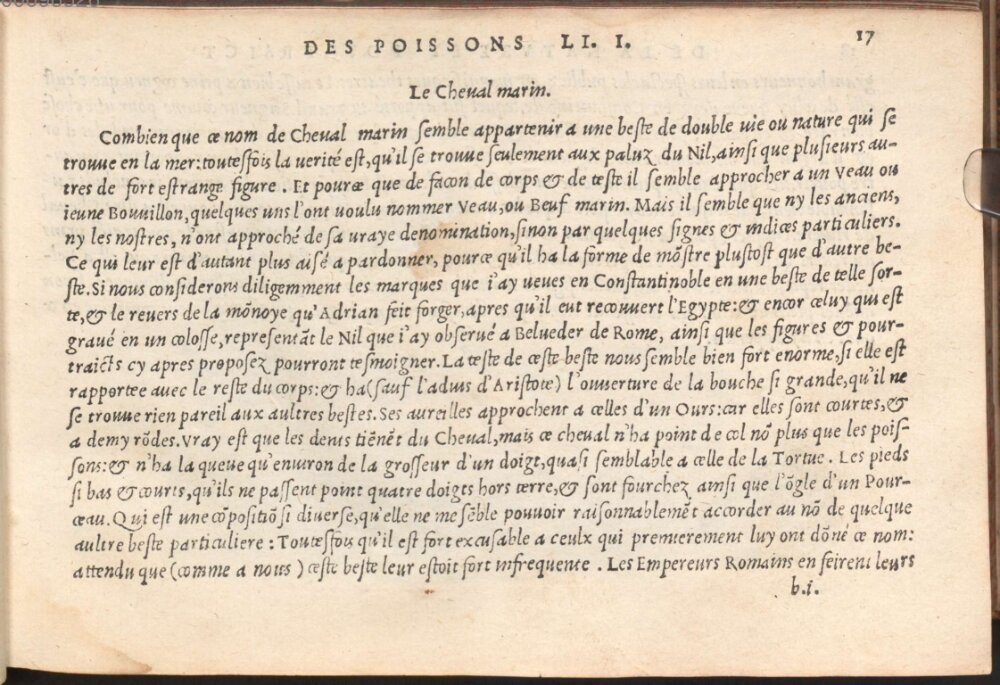 DES POISSONS LI. I.
17
Le Cheval marin.
Combien que ce nom de Cheval marin semble appartenir a une beste de double uie ou nature qui se
trouue en la mer:toutesfois la verité est,qu'il se trouue seulement aux paluz du Nil,ainsi que plusieurs au-
tres de fort estrange figure. Et pource que de facon de corps & de teste il semble approcher a un Veau ou
ieune Bouuillon,quelques uns l'ont uoulu nommer Veau,ou Beuf marin. Mais il semble que ny les anciens,
ny les nostres, n'ont approché de sa uraye denomination,sinon par quelques signes & indices particuliers.
Ce qui leur est d'autant plus aisé a pardonner, pource qu'il ha la forme de mõstre plustost que d'autre be-
ste.Si nous considerons diligemment les marques que i'ay ueues en Constantinoble en une beste de telle sor-
te,& le reuers de la mõnoye qu'Adrian feit forger,apres qu'il eut recouuert l'Egypte:& encor celuy qui est
graué en un colosse,representãt le Nil que i'ay obserué a Belueder de Rome, ainsi que les figures & pour-
traicts cy apres proposez pourront tesmoigner.La teste de ceste beste nous semble bien fort enorme,si elle est
rapportee auec le reste du corps:& ha(sauf l'aduis d'Aristote) l'ouuerture de la bouche si grande,qu'il ne
se trouue rien pareil aux aultres bestes.Ses aureilles approchent a celles d'un Ours:car elles sont courtes,&
a demy rõdes.Vray est que les dents tiẽnẽt du Cheval,mais ce cheval n'ha point de col nõ plus que les pois-
sons:& n'ha la queue qu'enuiron de la grosseur d'un doigt,quasi semblable a celle de la Tortue. Les pieds
si bas & courts,qu'ils ne passent point quatre doigts hors terre,& sont fourchez ainsi que l'õgle d'un Pour-
ceau.Qui est une cõpositiõ si diuerse,qu'elle ne me sẽble pouuoir raisonnablemẽt accorder au nõ de quelque
aultre beste particuliere: Toutesfois qu'il est fort excusable a ceulx qui premierement luy ont dõné ce nom:
attendu que (comme a nous) ceste beste leur estoit fort infrequente. Les Empereurs Romains en feirent leurs
b.i.